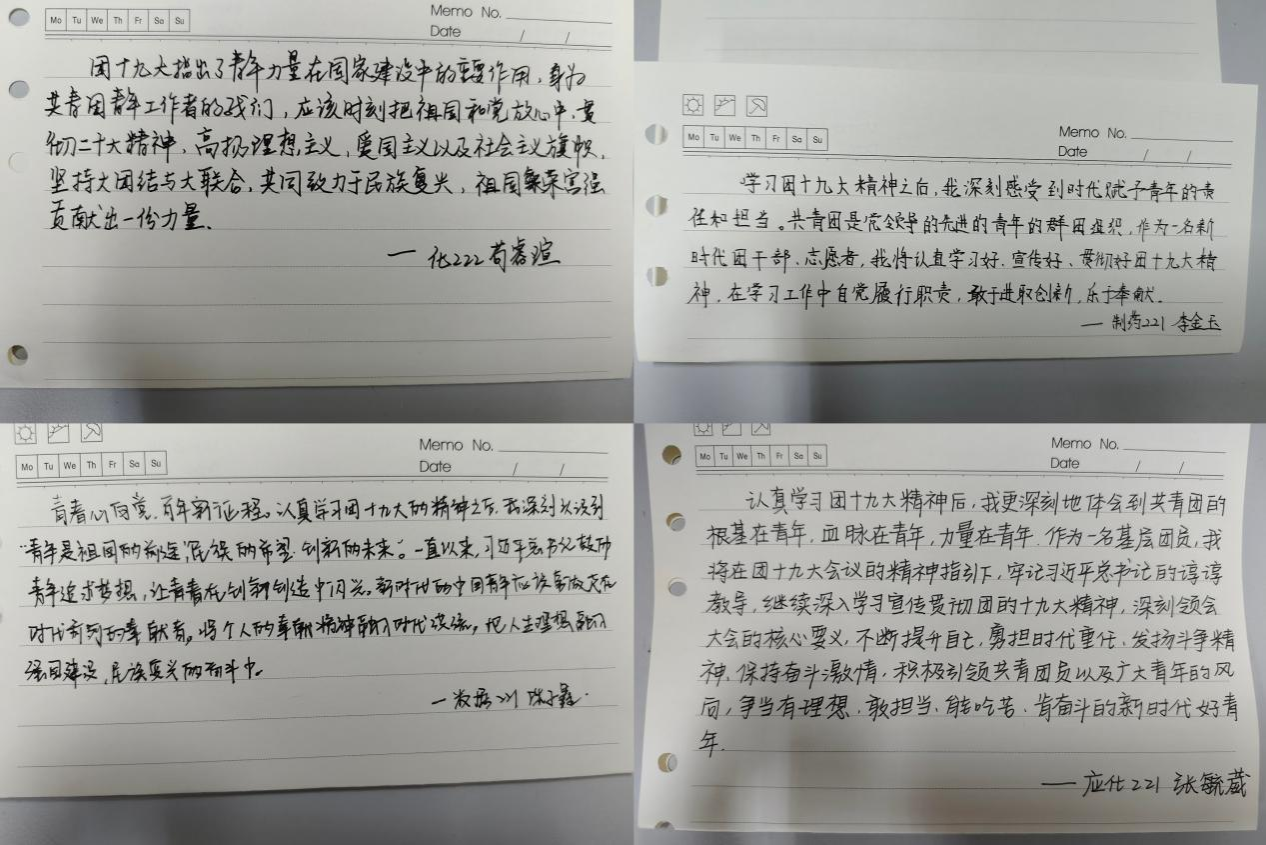 Mo Tu We Th Fr Sa Su
Memo No.
Date / /
团十九大指出了青年力量在国家建设中的重要作用,身为
共青团青年工作者的我们,应该时刻把祖国和党放心中,贯
彻二十大精神,高扬理想主义,爱国主义以及社会主义旗帜,
坚持大团结与大联合,共同致力于民族复兴,祖国繁荣富强
贡献出一份力量。
— 化222 苟睿瑄
Mo Tu We Th Fr Sa Su
Memo No.
Date / /
学习团十九大精神之后,我深刻感受到时代赋予青年的责
任和担当。共青团是党领导的先进的青年的群团组织,作为一名新
时代团干部、志愿者,我将认真学习好、宣传好、贯彻好团十九大精
神,在学习工作中自觉履行职责,敢于进取创新,乐于奉献.
— 制药221 李金玉
Mo Tu We Th Fr Sa Su
Memo No.
Date / /
青春心向党,百年新征程。认真学习团十九大的精神之后,我深刻认识到
"青年是祖国的前途、民族的希望、创新的未来"。一直以来,习近平总书记鼓励
青年追求梦想,让青春在创新创造中闪光。新时代的中国青年应该
时代前列的奉献者,将个人的奉献精神融入时代洪流,把人生理想融入
强国建设,民族复兴的奋斗中。
Mo Tu We Th Fr Sa Su
Memo No.
Date / /
认真学习团十九大精神后,我更深刻地体会到共青团的
根基在青年,血脉在青年,力量在青年.作为一名基层团员,我
将在团十九大会议的精神指引下,牢记习近平总书记的谆谆
教导,继续深入学习宣传贯彻团的十九大精神,深刻领会
大会的核心要义,不断提升自己,勇担时代重任、发扬斗争精
神、保持奋斗激情,积极引领共青团员以及广大青年的风
向,争当有理想、敢担当、能吃苦、肯奋斗的新时代好青
年.
— 应化221 张毓葳